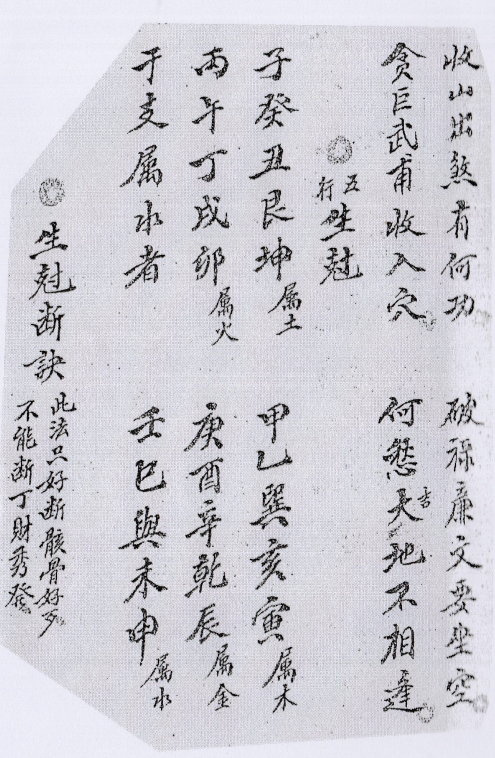 收山出煞有何功　破祿廉文要坐空
貪巨武甫收入穴　何愁大吉地不相逢
五行生尅
子癸丑艮坤属土　甲乙巽亥寅属木
丙午丁戌卯属火　庚酉辛乾辰属金
干支属水者　壬巳與未申属水
生尅断訣
此法只好断骸骨好歹
不能断丁財秀發